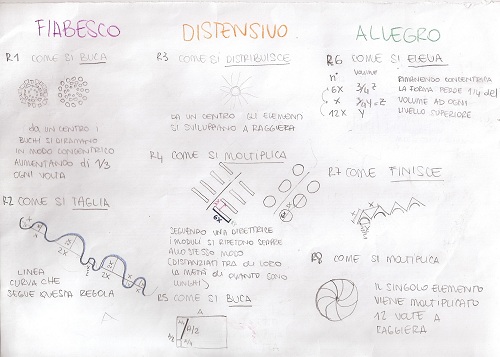 FIABESCO
R1 COME SI BUCA
DA UN CENTRO I
BUCHI SI DIRAMANO
IN MODO CONCENTRICO
AUMENTANDO DI 1/3
OGNI VOLTA
R2 COME SI TAGLIA
X
2X
2X
LINEA
CURVA CHE
SEGUE QUESTA REGOLA
DISPENSIVO
R3 COME SI DISTRIBUISCE
DA UN CENTRO GLI ELEMENTI
SI SVILUPPANO A RAGGIERA
R4 COME SI MOLTIPLICA
6X
SEGUENDO UNA DIRETTRICE
I MODULI SI RIPETONO SEMPRE
ALLO STESSO MODO
(DISTANZIATI TRA DI LORO
LA METÀ DI QUANTO SONO
LUNGHI)
R5 COME SI BUCA
A
A/2
ALLEGRO
R6 COME SI ELEVA
n° VOLUME
6X 3/4 Z
X 3/4Y=Z
12X Y
RIMANENDO CONCENTRICA
LA FORMA PERDE 1/4 DEL
VOLUME AD OGNI
LIVELLO SUPERIORE
R7 COME FINISCE
R8 COME SI MOLTIPLICA
IL SINGOLO ELEMENTO
VIENE MOLTIPLICATO
12 VOLTE A
RAGGIERA